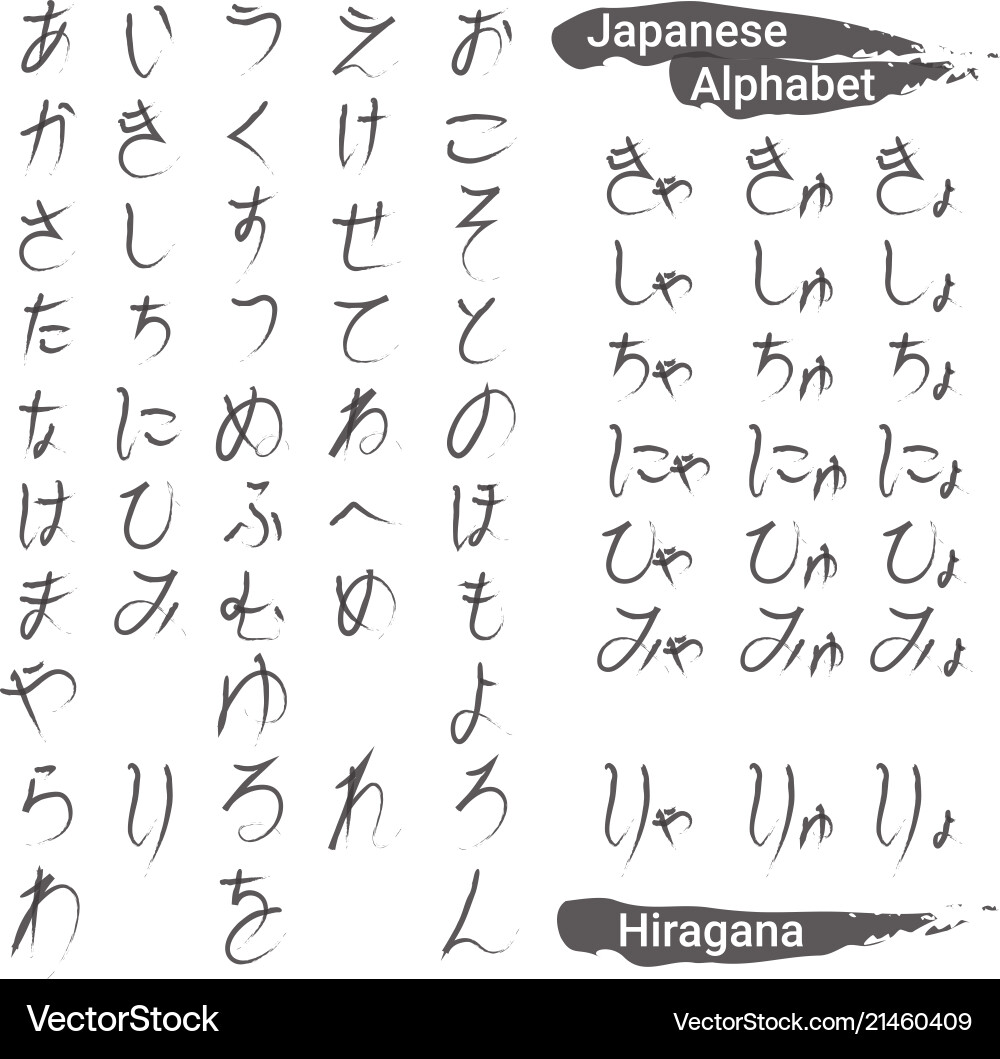 あ い う え お
か き く け こ
さ し す せ そ
た ち つ て と
な に ぬ ね の
は ひ ふ へ ほ
ま み む め も
や ゆ よ
ら り る れ ろ
わ を ん
Japanese
Alphabet
きゃ きゅ きょ
しゃ しゅ しょ
ちゃ ちゅ ちょ
にゃ にゅ にょ
ひゃ ひゅ ひょ
みゃ みゅ みょ
りゃ りゅ りょ
Hiragana
VectorStock
VectorStock.com/21460409